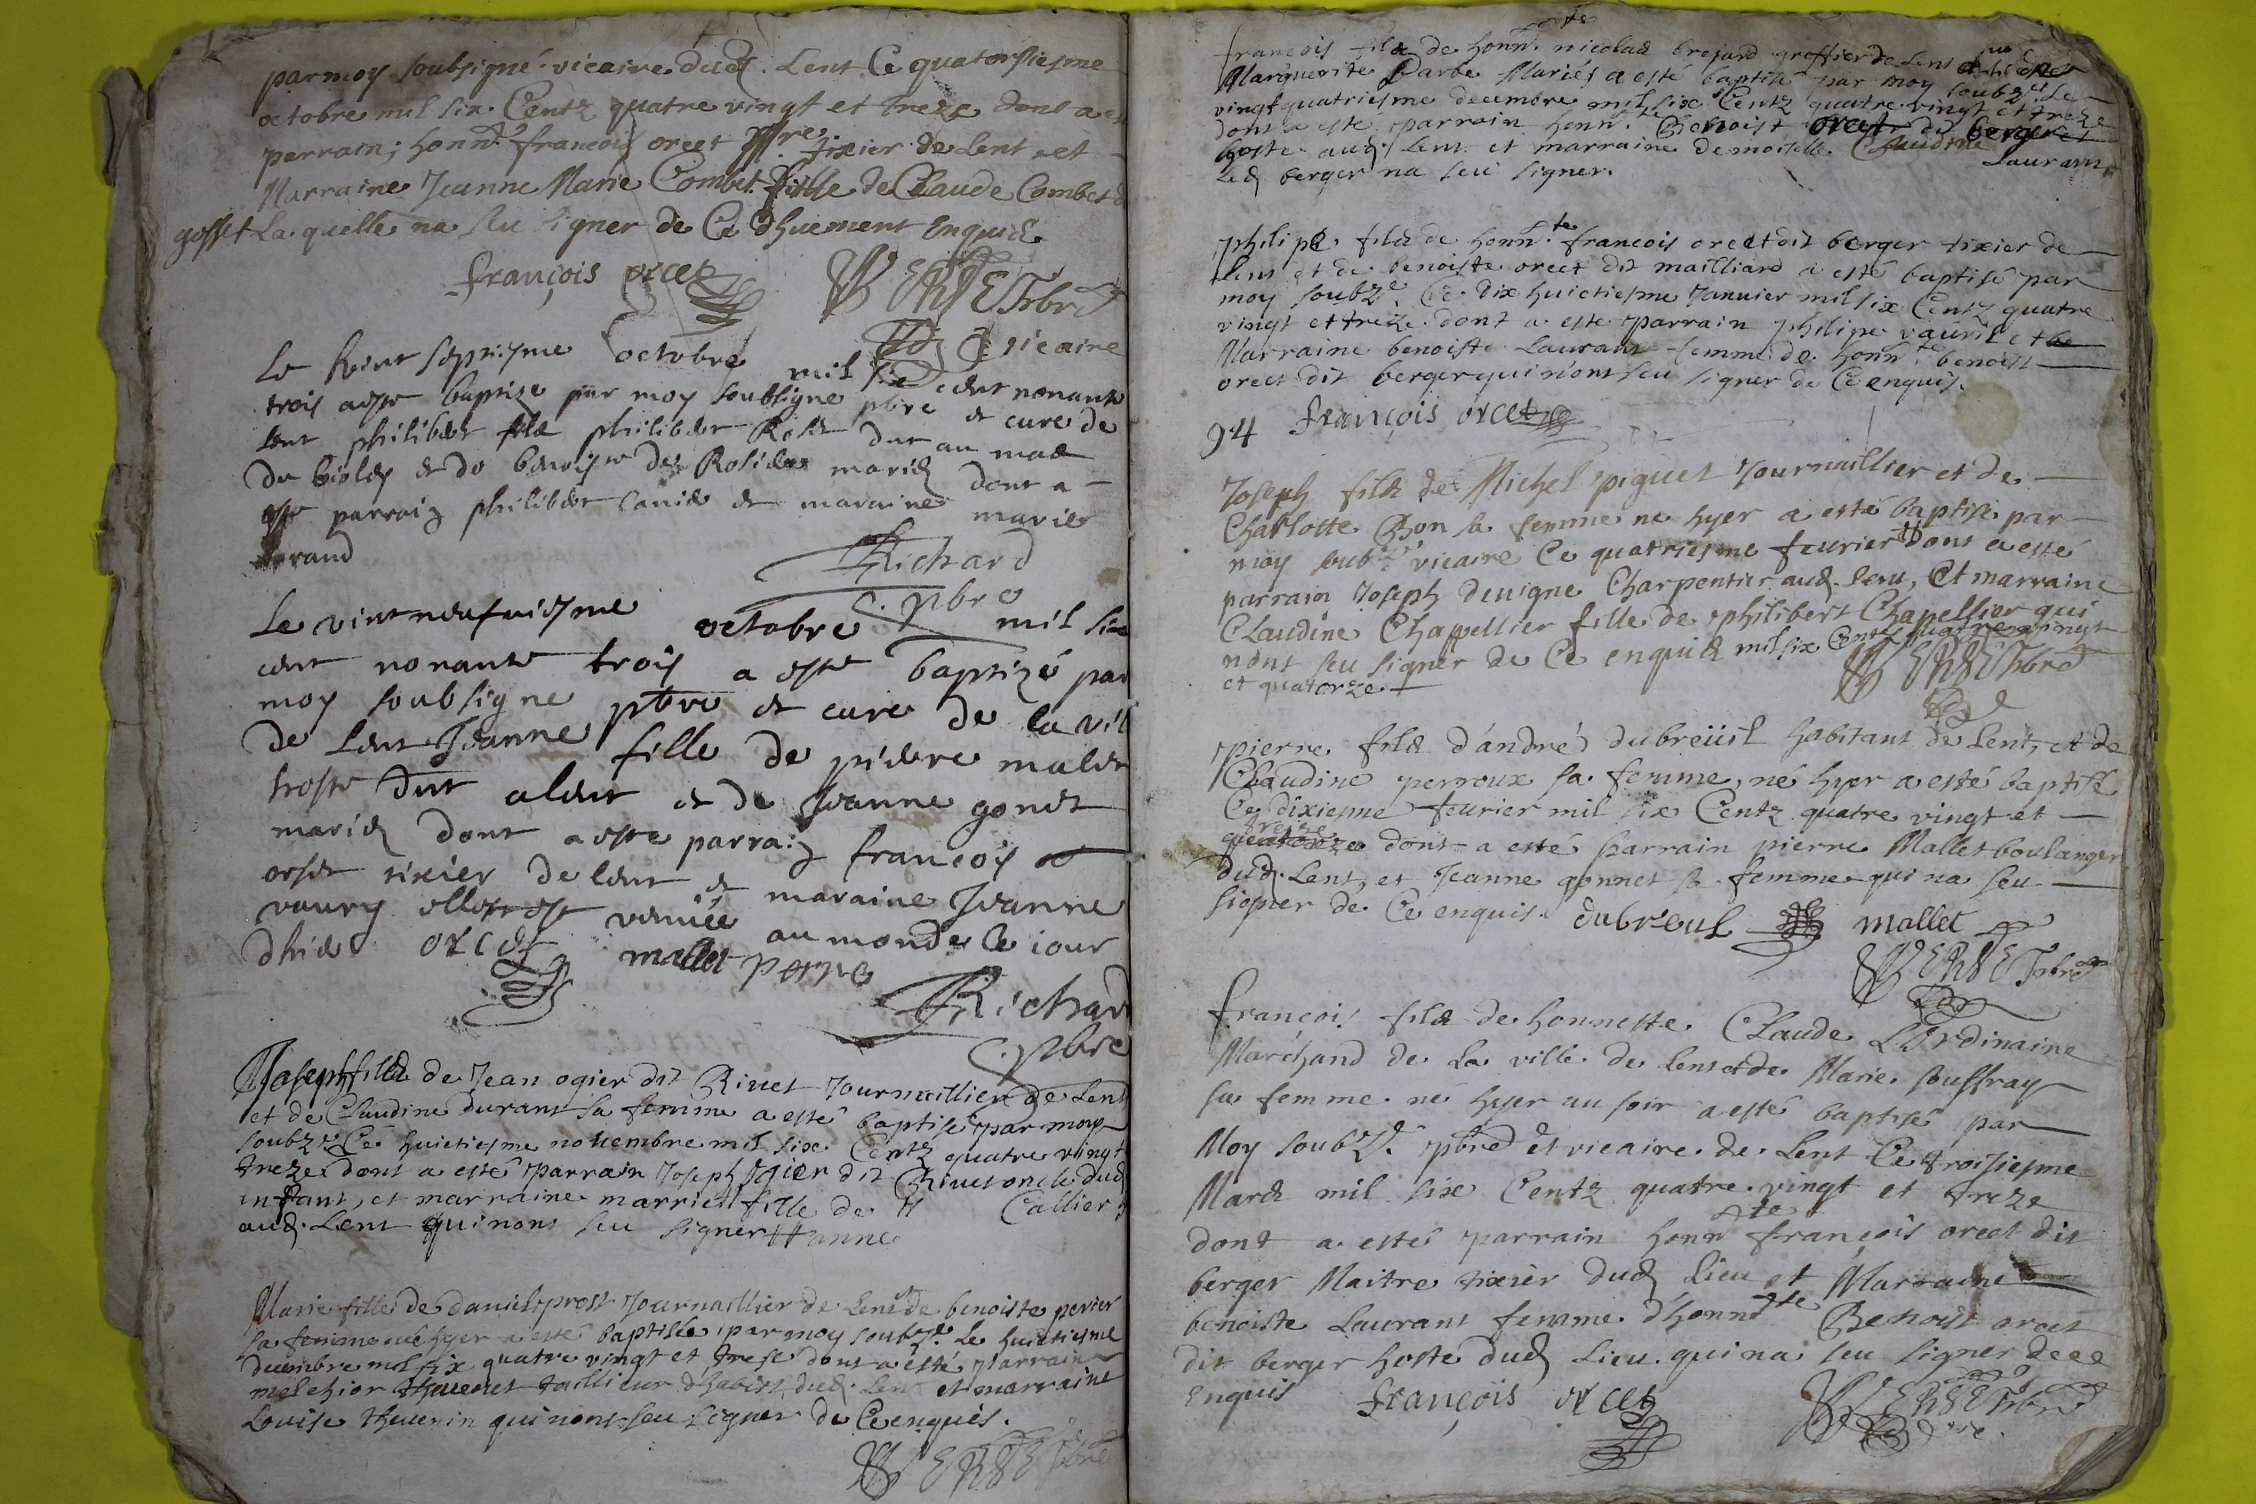 par moy soubsigné vicaire dud. Lent Ce quatorsiesme
octobre mil six Centz quatre vingt et treze dont a
parrain; honn. françois orcet tixier de Lent et
Marraine Jeanne Marie Combet fille de Claude Combet
gosset La quelle na sceu signer de Ce dhuement Enquise
françois orcet
vicaire
Le septiesme octobre mil six cent nonante
trois a este baptize par moy soubsigne pbre et cure de
lent philibert filz philibert au mas
du et de benoiste mariez dont a
este parrain philibert et maraine marie
Richard
pbre
Le vint neufuiesme octobre mil six
cent nonante trois a este baptizé par
moy soubsigne pbre et cure de la vil
de Lent Jeanne fille de pierre malet
hoste dut a lent et de Jeanne gonet
mariez dont a este parrain françois
orset tixier de lent et maraine Jeanne
vaury elle est venuée au monde le iour
dhier orcet mallet perre
Richard
pbre
Joseph filz de Jean ogier dit Rivet Journaillier de Lent
et de Claudine Durant sa femme a esté baptisé par moy
soubz.é Ce huictiesme novembre mil six Centz quatre vingt
treze dont a esté parrain Joseph ogier dit Rivet oncle dud
infant, et marraine marrie fille de # Callier
aud. Lent qui nont seu signer # anne
Marie fille de daniel prost Journaillier de Lent de benoiste perier
sa femme né hyer a esté baptisée par moy soubz.é Le huictiesme
decembre mil six quatre vingt et treze dont a esté parrain
melchior thevenet taillieur dhabist dud. Lent et marraine
Louise thevenin qui nont seu signer de Ce enquis.
françois filz de honn.te nicolas brojard greffier de Lent
Marguerite Barbe Mariés a esté baptisé par moy soubz.é Le
vingt quatriesme decembre mil six Centz quatre vingt et treze
dont a esté parrain honn.te Benoist orcet dit berger et
hoste aud. Lent et marraine demoiselle Claudine Laurant
Led berger na seu signer.
philipe filz de honn.te françois orcet dit berger tixier de
Lent et de benoiste orcet dit mailliard a esté baptisé par
moy soubz.é Ce dix huictiesme Januier mil six Centz quatre
vingt et treize dont a este parrain philipe vauril et
Marraine benoiste Laurant femme de honn.te benoist
orcet dit berger qui nont seu signer de Ce enquis.
94 françois orcet
Joseph filz de Michel piquet Journaillier et de
Charlotte Bon sa femme ne hyer a esté baptise par
moy soubz.é vicaire Ce quatriesme feurier # dont a esté
parrain Joseph deuigne Charpentier aud. Lent, Et marraine
Claudine Chapellier fille de philibert Chapellier qui
nont seu signer de Ce enquis mil six Centz quatre vingt
et quatorze
pierre filz d'andré dubreüil habitant de Lent, et de
Claudine perroux sa femme, né hyer a esté baptisé
Ce dixiesme feurier mil six Centz quatre vingt et
treze
quatorze dont a esté parrain pierre Mallet boulanger
dud. Lent, et Jeanne gonnet sa femme qui na seu
signer de Ce enquis. dubreul mallet
françois filz de honneste Claude L'ordinaire
Marchand de La ville de Lent et de Marie souffray
sa femme né hyer au soir a esté baptisé par
Moy soubz.é pbre et vicaire de Lent Ce troisiesme
Mars mil six Centz quatre vingt et treze
dont a esté parrain honn.te françois orcet dit
berger Maitre tixier dud Lieu et Marraine
benoiste Laurant femme d'honn.te Benoist orcet
dit berger hoste dud Lieu qui na seu signer de ce
Enquis françois orcet